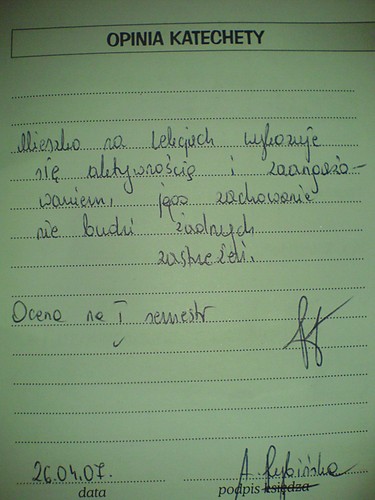 OPINIA KATECHETY
Mieszko na lekcjach wykazuje
się aktywnością i zaangażo-
waniem, jego zachowanie
nie budzi żadnych
zastrzeżeń.
Ocena na I semestr
26.04.07.
data podpis księdza